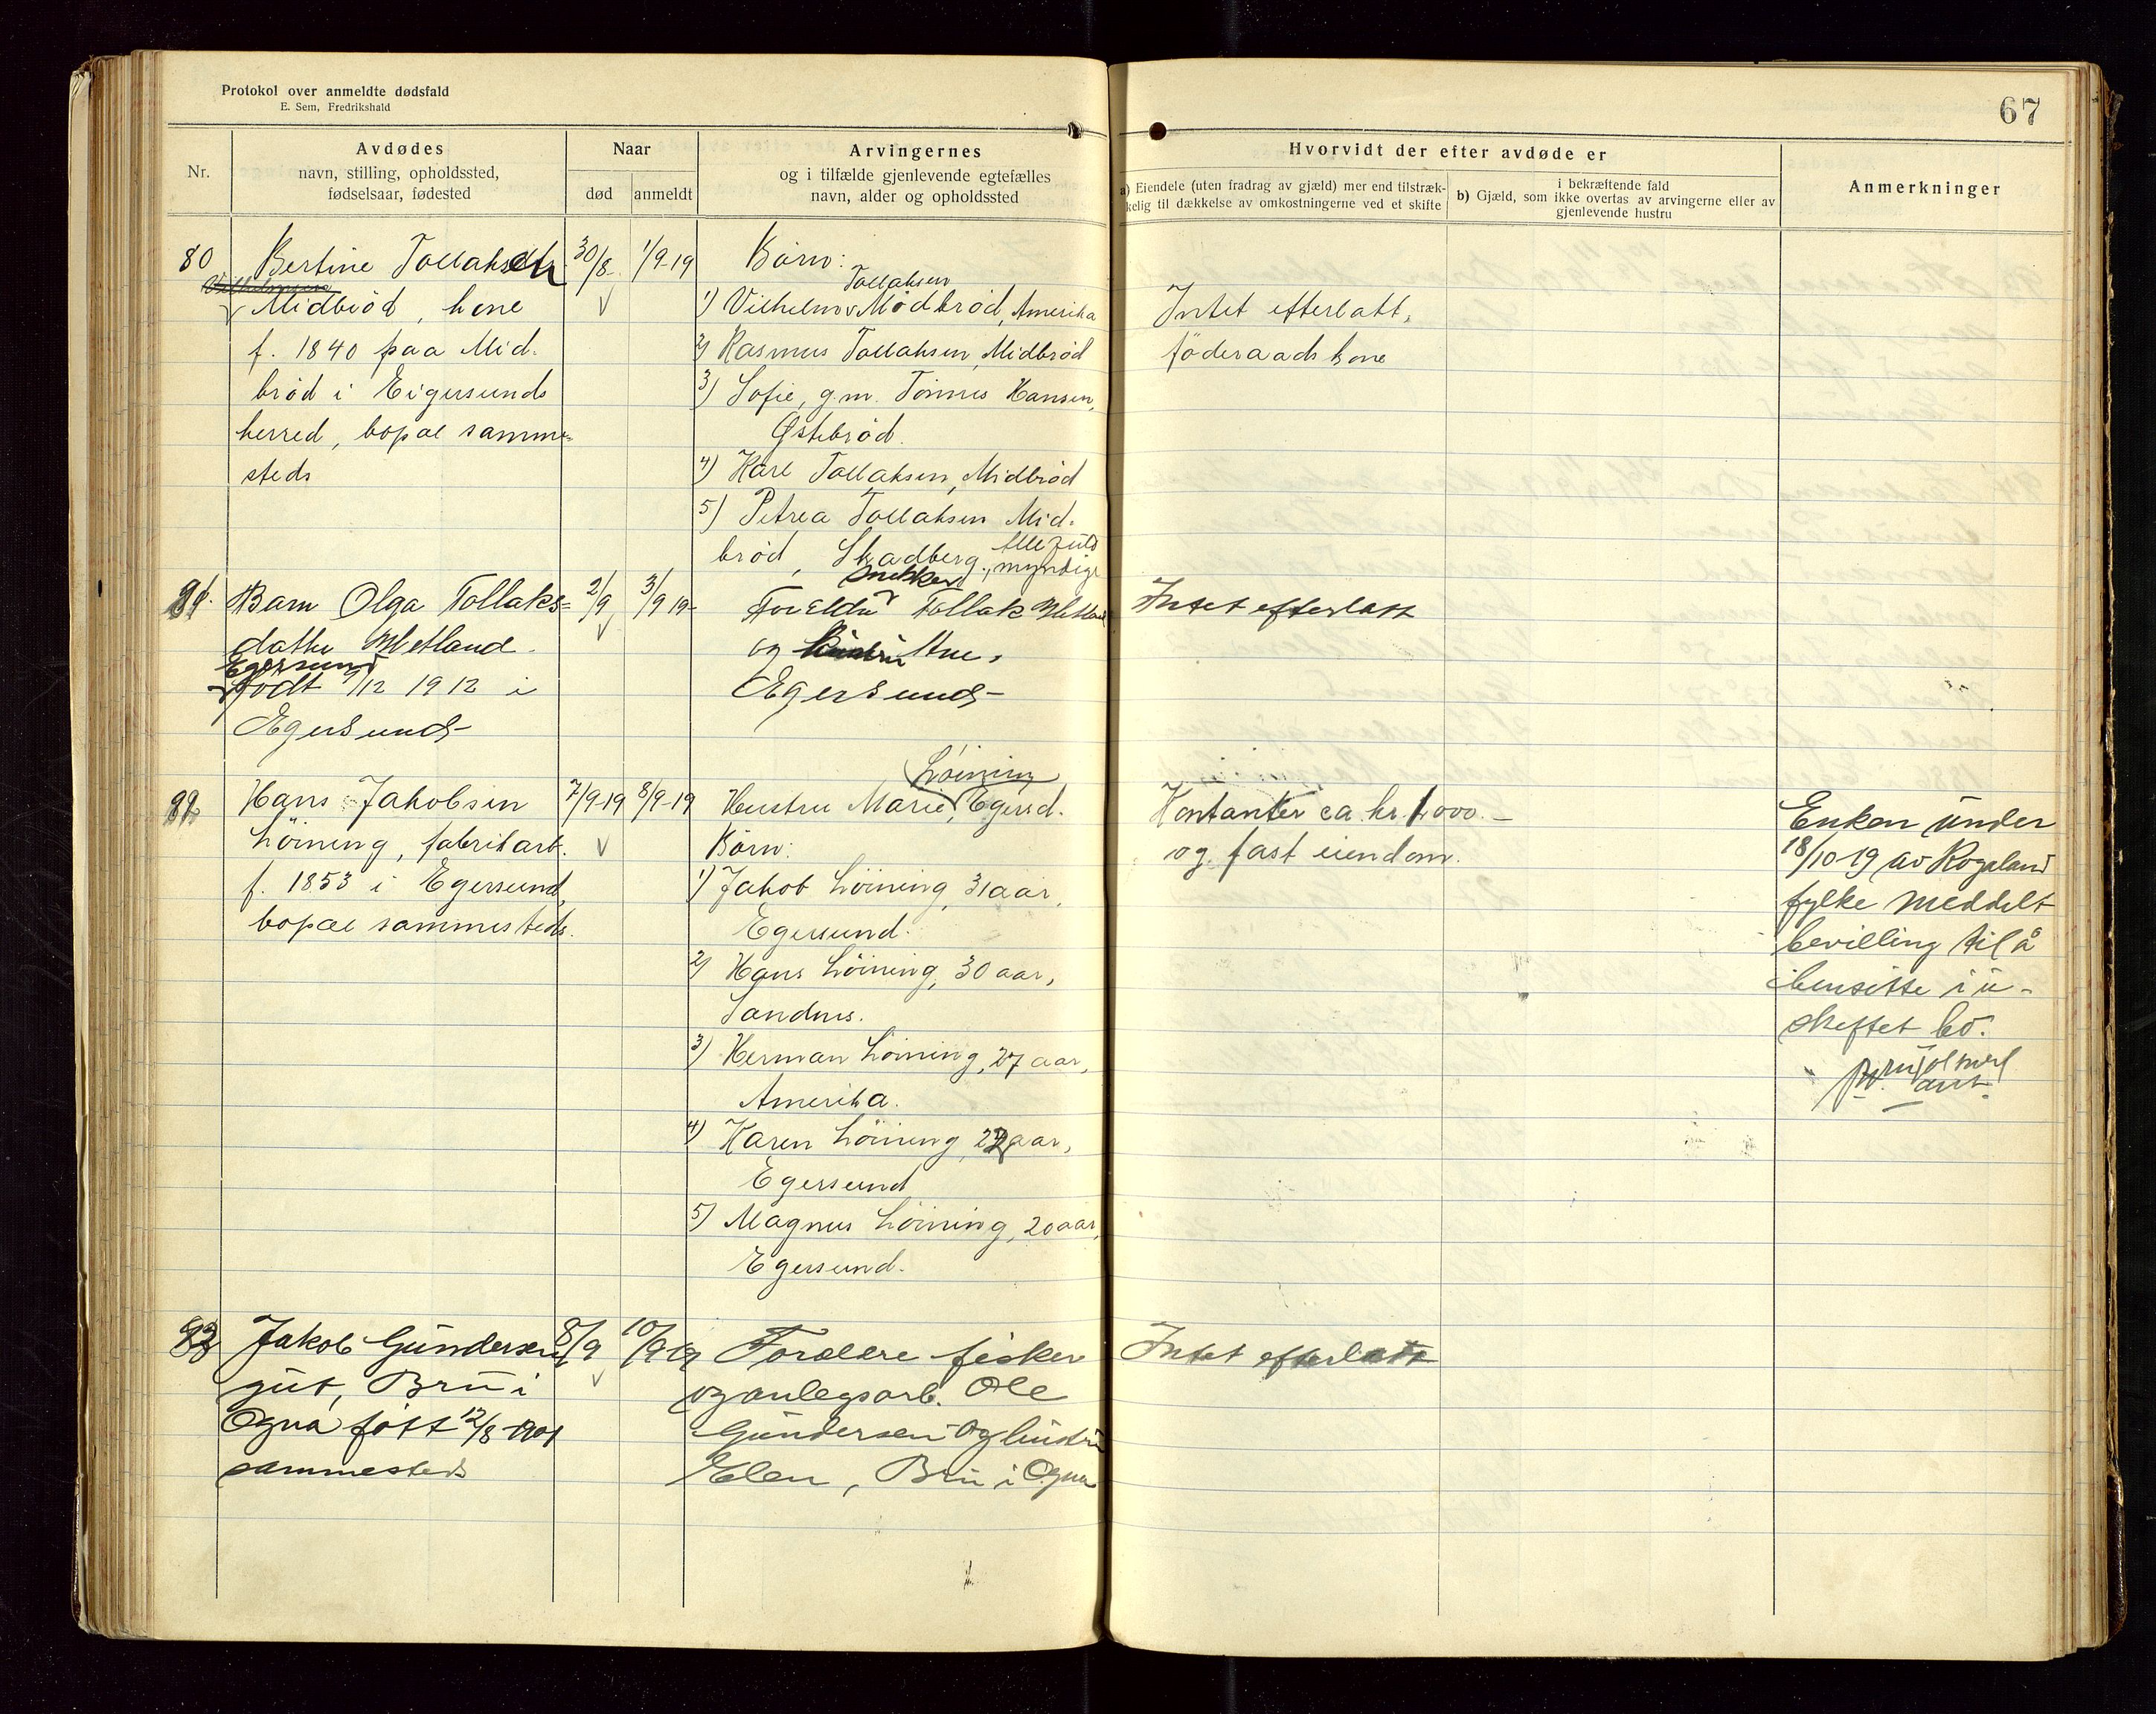 Protokol over anmeldte dødsfald
E. Sem, Fredrikshald
67
Nr.
Avdødes
navn, stilling, opholdssted,
fødselsaar, fødested
Naar
død
anmeldt
Arvingernes
og i tilfælde gjenlevende egtefælles
navn, alder og opholdssted
Hvorvidt der efter avdøde er
a) Eiendele (uten fradrag av gjæld) mer end tilstræk-
kelig til dækkelse av omkostningerne ved et skifte
i bekræftende fald
b) Gjæld, som ikke overtas av arvingerne eller av
gjenlevende hustru
Anmerkninger
80
Bertine Tollaksdtr
Midbrød, kone
f. 1840 paa Mid-
brød i Eigersunds
herred, bopæl samme-
steds
30/8
1/9-19
Børn:
Tollaksen
1) Vilhelm Midbrød, Amerika
2) Rasmus Tollaksen, Midbrød
3) Sofie, g.m. Tønnes Hansen,
Østebrød.
4) Karl Tollaksen, Midbrød
5) Petrea Tollaksen Mid-
brød, Skadberg. Alle fuld
myndige
Intet efterlatt,
föderaadskone
81.
Barn Olga Tollaks=
datter Metland
Egersund
født 9/12 1912 i
Egersund
2/9
3/9 19
snekker
Foreldre Tollak Metland
og Hustru Ane,
Egersund
Intet efterlatt
82
Hans Jakobsen
Löining, fabrikarb.
f. 1853 i Egersund,
bopæl sammesteds.
7/9-19
8/9-19
Löining
Hustru Marie, Egersd.
Børn:
1) Jakob Löining, 31 aar,
Egersund.
2) Hans Löining, 30 aar,
Sandnes.
3) Herman Löining, 27 aar,
Amerika.
4) Karen Löining, 22 aar,
Egersund
5) Magnus Löining, 20 aar,
Egersund.
Kontanter ca. kr. 1000.-
og fast eiendom.
Enken under
18/10 19 av Rogaland
fylke meddelt
bevilling til å
hensitte i u-
skiftet bo.
83
Jakob Gundersen
gut, Bru i
Ogna født 12/8 1901
sammesteds
8/9
10/9 19
Forældre fisker
og anlegsarb. Ole
Gundersen og hustru
Elen, Bru i Ogna
Intet efterlatt